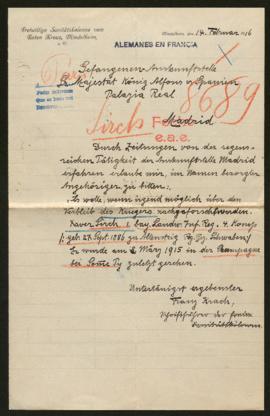 Freiwillige Sanitätskolonne vom
Roten Kreuz, Mindelheim
Mindelheim, den 14. Februar 1916
ALEMANES EN FRANCIA
Gefangenen Auskunftstelle
Sr. Majestät König Alfons v. Spanien
Palazia Real
Madrid
8689
Sirch F
e.a.e.
Durch Zeitungen von der segens-
reichen Tätigkeit der Auskunftstelle Madrid
erfahren erlaube mir, im Namen besorgter
Angehöriger zu bitten:
Es wolle, wenn irgend möglich über den
Verbleib des Kriegers nachgeforscht werden.
Xaver Sirch 1. bay. Landw. Inf. Reg. 4. Komp.
geb. 27. Sept. 1886 zu
Er wurde am 2 März 1915 in der Champagne
bei Somme Py zuletzt gesehen.
Untertänigst ergebenster
Franz Krach,
Schriftführer der freiw.
Sanitätskolonne.